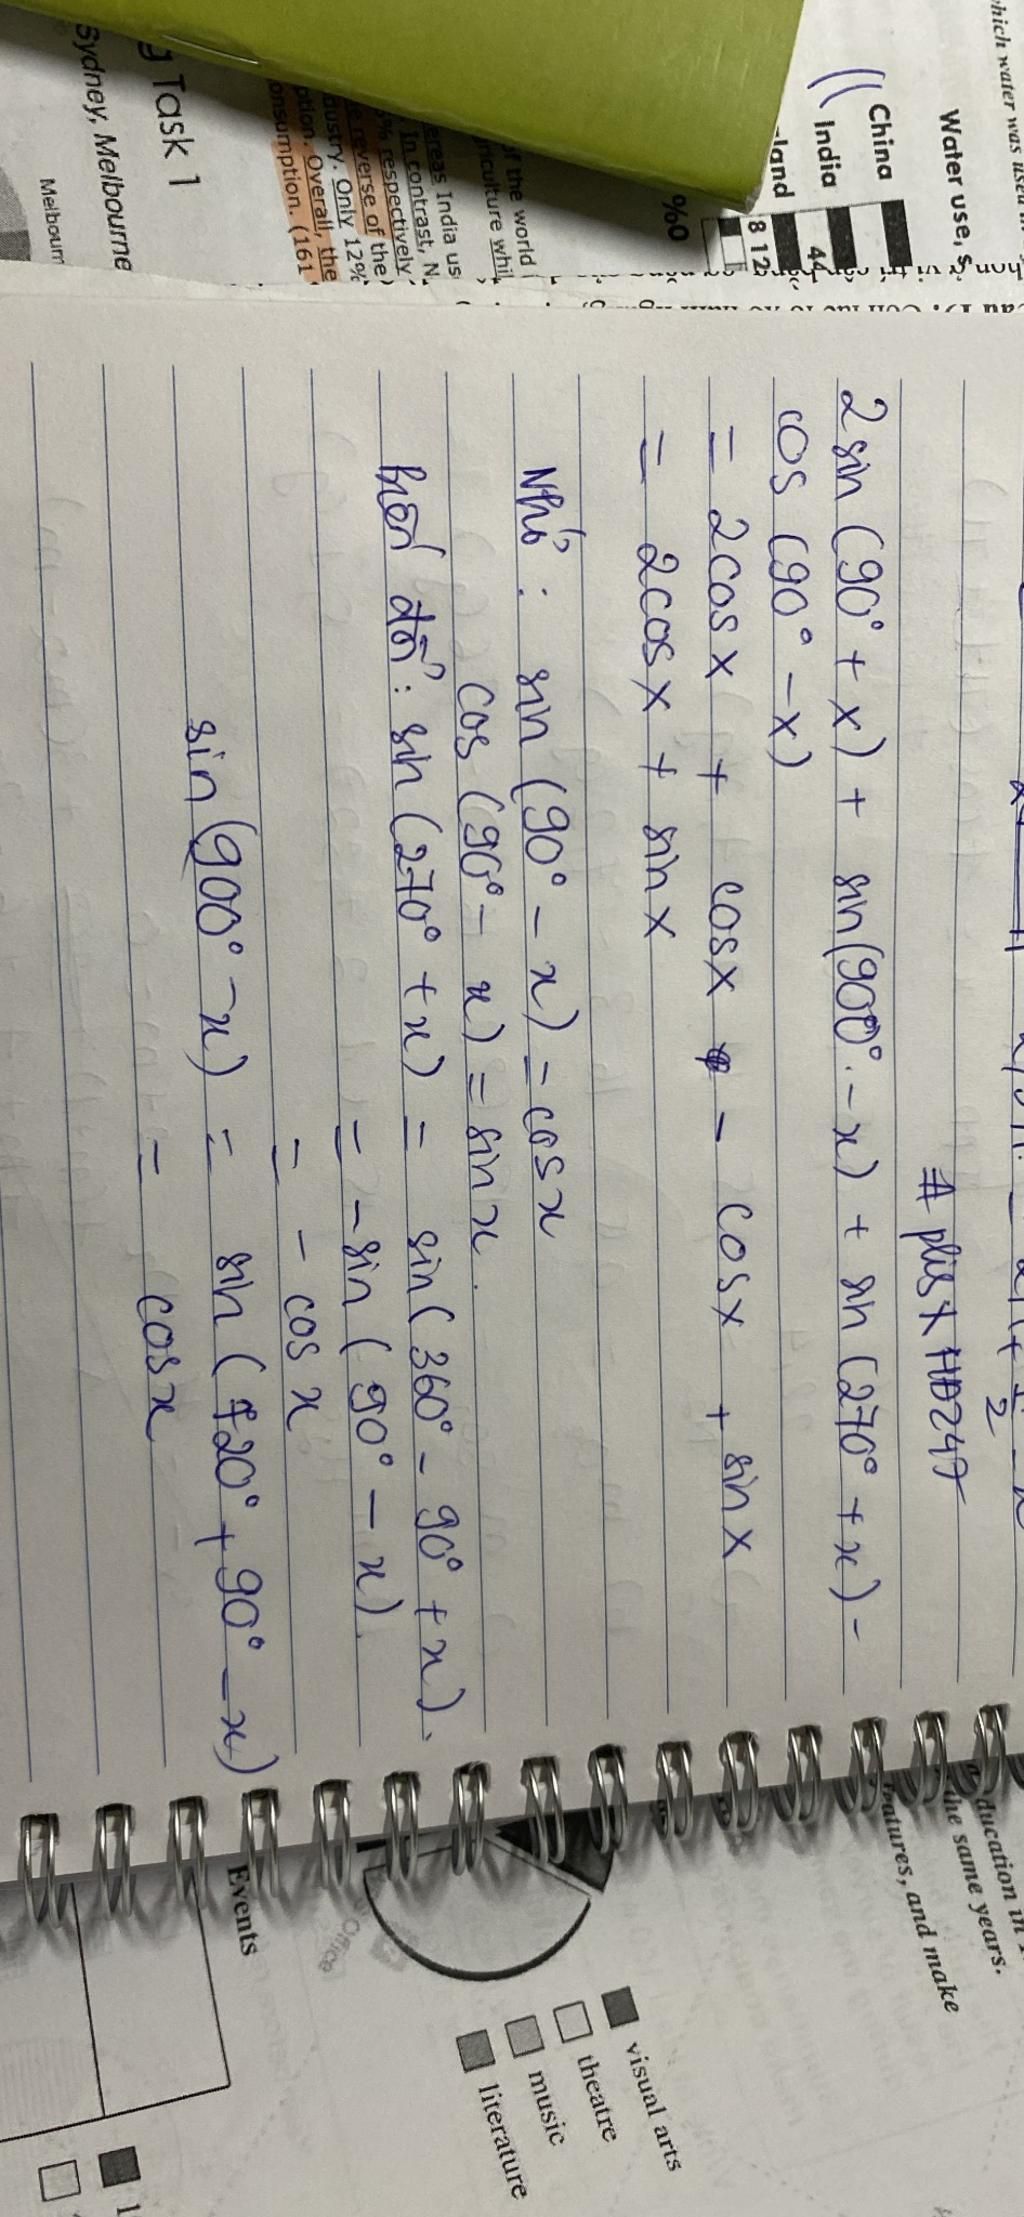 # plisxHD247
2 sin (90° + x) + sin(900° - x) + sin (270° + x) -
cos (90° - x)
= 2cosx + cosx - cosx + sinx
= 2cosx + sinx
Nhớ: sin (90° - x) = cosx
cos (90° - x) = sinx.
Biến đổi: sin (270° + x) = sin(360° - 90° + x).
= - sin (90° - x).
= - cos x
sin (900° - x) = sin (720° + 90° - x)
= cosx
which water was used
Water use,
China
India
44
land
8 12
0%
of the world
riculture whil
ereas India us
In contrast, N
% respectively
e reverse of the
dustry. Only 12%
ption. Overall, the
onsumption. (161
Task 1
Sydney, Melbourne
Melbourn
ducation in
the same years.
features, and make
visual arts
theatre
music
literature
Office
Events